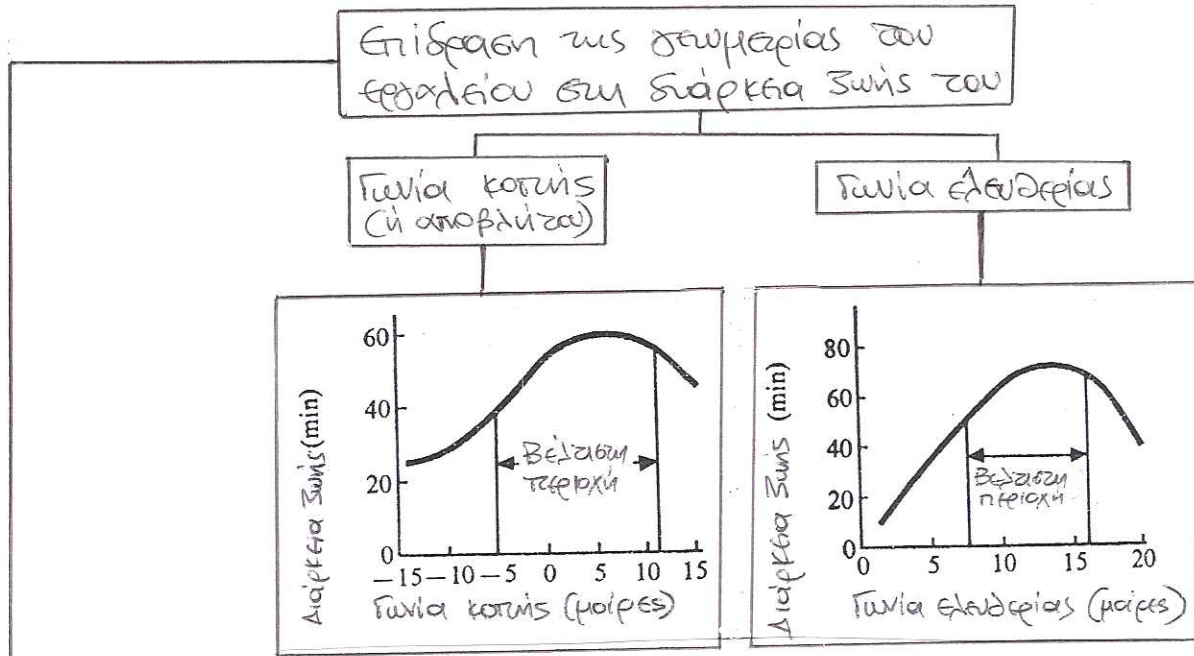 Επίδραση της γεωμετρίας του
εργαλείου στη διάρκεια ζωής του
Γωνία κοπής
(ή αποβλήτου)
Γωνία ελευθερίας
Διάρκεια ζωής (min)
60
40
20
0
Βέλτιστη
περιοχή
-15 -10 -5 0 5 10 15
Γωνία κοπής (μοίρες)
Διάρκεια ζωής (min)
80
60
40
20
0
Βέλτιστη
περιοχή
0 5 10 15 20
Γωνία ελευθερίας (μοίρες)